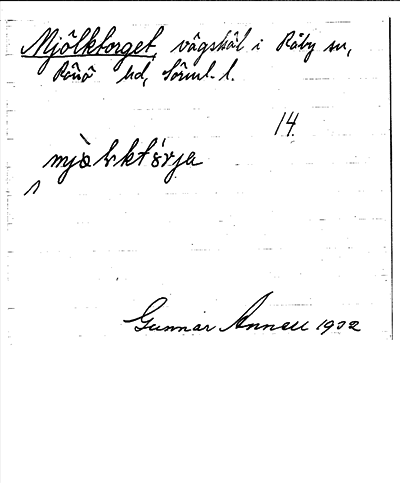 Mjölktorget, vägskäl i Råby sn,
Rönö hd, Sörml. l.
14.
Gunnar Annell 1932